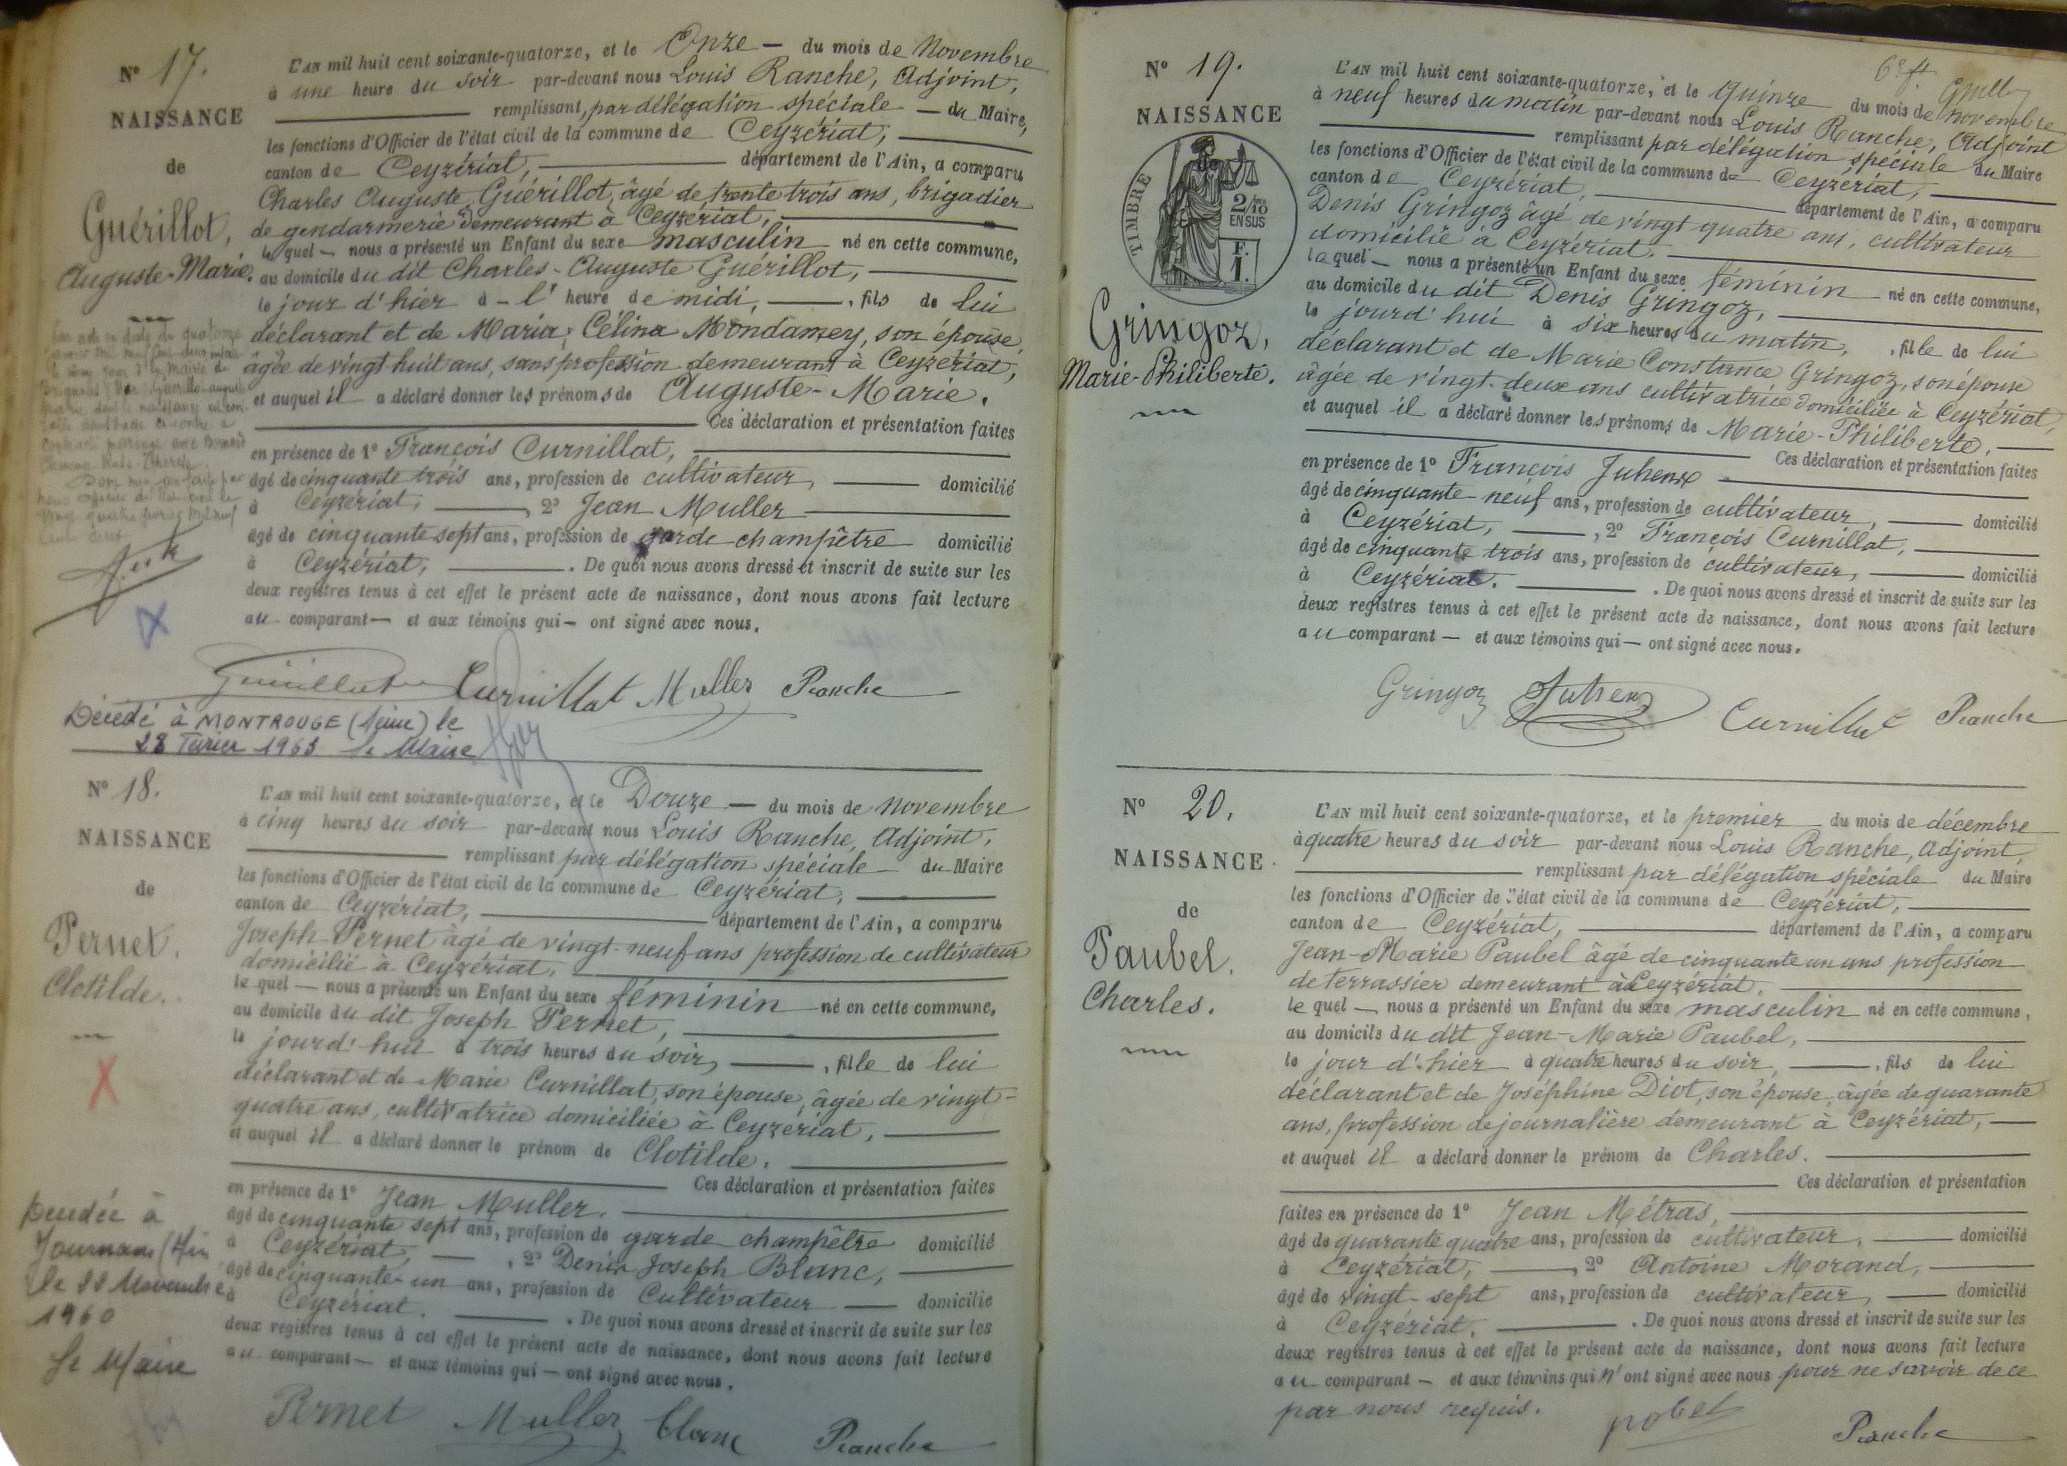 N° 17.
NAISSANCE
de
Guérillot,
Auguste-Marie.
L'AN mil huit cent soixante-quatorze, et le Onze — du mois de Novembre
à une heure du soir par-devant nous Louis Ranche, Adjoint,
remplissant, par délégation spéciale — du Maire,
les fonctions d'Officier de l'état civil de la commune de Ceyzériat,
canton de Ceyzériat, département de l'Ain, a comparu
Charles Auguste Guérillot, âgé de trente trois ans, brigadier
de gendarmerie demeurant à Ceyzériat,
lequel — nous a présenté un Enfant du sexe masculin né en cette commune,
au domicile du dit Charles-Auguste Guérillot,
le jour d'hier à — l'heure de midi, , fils de lui
déclarant et de Maria, Célina Mondamey, son épouse,
âgée de vingt huit ans, sans profession demeurant à Ceyzériat,
et auquel il a déclaré donner les prénoms de Auguste-Marie.
Ces déclaration et présentation faites
en présence de 1° François Curnillat,
âgé de cinquante trois ans, profession de cultivateur, domicilié
à Ceyzériat, , 2° Jean Muller
âgé de cinquante sept ans, profession de garde champêtre domicilié
à Ceyzériat, . De quoi nous avons dressé et inscrit de suite sur les
deux registres tenus à cet effet le présent acte de naissance, dont nous avons fait lecture
au comparant — et aux témoins qui — ont signé avec nous.
Curnillat Muller Ranche
Décédé à MONTROUGE (Seine) le
28 Février 1963 Le Maire
N° 18.
NAISSANCE
de
Pernet.
Clotilde.
L'AN mil huit cent soixante-quatorze, et le Douze — du mois de Novembre
à cinq heures du soir par-devant nous Louis Ranche, Adjoint,
remplissant par délégation spéciale du Maire
les fonctions d'Officier de l'état civil de la commune de Ceyzériat,
canton de Ceyzériat, département de l'Ain, a comparu
Joseph Pernet âgé de vingt-neuf ans profession de cultivateur
domicilié à Ceyzériat,
lequel — nous a présenté un Enfant du sexe féminin né en cette commune,
au domicile du dit Joseph Pernet,
le jourd'hui à trois heures du soir, , fille de lui
déclarant et de Marie Curnillat, son épouse, âgée de vingt-
quatre ans, cultivatrice domiciliée à Ceyzériat,
et auquel il a déclaré donner le prénom de Clotilde.
Ces déclaration et présentation faites
en présence de 1° Jean Muller,
âgé de cinquante sept ans, profession de garde champêtre domicilié
à Ceyzériat, — , 2° Denis Joseph Blanc,
âgé de cinquante-un ans, profession de Cultivateur — domicilié
à Ceyzériat. . De quoi nous avons dressé et inscrit de suite sur les
deux registres tenus à cet effet le présent acte de naissance, dont nous avons fait lecture
au comparant — et aux témoins qui — ont signé avec nous.
Pernet Muller Blanc Ranche
Décédée à
Journans (Ain
le 22 Novembre
1960
Le Maire
N° 19.
NAISSANCE
TIMBRE
2/10
EN SUS
F.
1.
Gringoz,
Marie-Philiberte.
L'AN mil huit cent soixante-quatorze, et le Quinze du mois de Novembre
à neuf heures du matin par-devant nous Louis Ranche, Adjoint
remplissant par délégation spéciale du Maire
les fonctions d'Officier de l'état civil de la commune de Ceyzériat,
canton de Ceyzériat, département de l'Ain, a comparu
Denis Gringoz âgé de vingt quatre ans, cultivateur
domicilié à Ceyzériat.
lequel — nous a présenté un Enfant du sexe féminin né en cette commune,
au domicile du dit Denis Gringoz,
le jourd'hui à six heures du matin, , fille de lui
déclarant et de Marie Constance Gringoz, son épouse
âgée de vingt-deux ans cultivatrice domiciliée à Ceyzériat,
et auquel il a déclaré donner les prénoms de Marie-Philiberte,
Ces déclaration et présentation faites
en présence de 1° François
âgé de cinquante neuf ans, profession de cultivateur, domicilié
à Ceyzériat, , 2° François Curnillat,
âgé de cinquante trois ans, profession de cultivateur, domicilié
à Ceyzériat. . De quoi nous avons dressé et inscrit de suite sur les
deux registres tenus à cet effet le présent acte de naissance, dont nous avons fait lecture
au comparant — et aux témoins qui — ont signé avec nous.
Gringoz Curnillat Ranche
N° 20.
NAISSANCE
de
Paubel.
Charles.
L'AN mil huit cent soixante-quatorze, et le premier du mois de décembre
à quatre heures du soir par-devant nous Louis Ranche, Adjoint,
remplissant par délégation spéciale du Maire
les fonctions d'Officier de l'état civil de la commune de Ceyzériat,
canton de Ceyzériat, département de l'Ain, a comparu
Jean-Marie Paubel âgé de cinquante un ans profession
de terrassier demeurant à Ceyzériat.
lequel — nous a présenté un Enfant du sexe masculin né en cette commune,
au domicile du dit Jean-Marie Paubel,
le jour d'hier à quatre heures du soir, , fils de lui
déclarant et de Joséphine Diot, son épouse, âgée de quarante
ans, profession de journalière demeurant à Ceyzériat,
et auquel il a déclaré donner le prénom de Charles.
Ces déclaration et présentation
faites en présence de 1° Jean Métras,
âgé de quarante quatre ans, profession de cultivateur, domicilié
à Ceyzériat, , 2° Antoine Morand,
âgé de vingt-sept ans, profession de cultivateur, domicilié
à Ceyzériat. . De quoi nous avons dressé et inscrit de suite sur les
deux registres tenus à cet effet le présent acte de naissance, dont nous avons fait lecture
au comparant — et aux témoins qui n'ont signé avec nous pour ne savoir de ce
par nous requis.
pobel Ranche